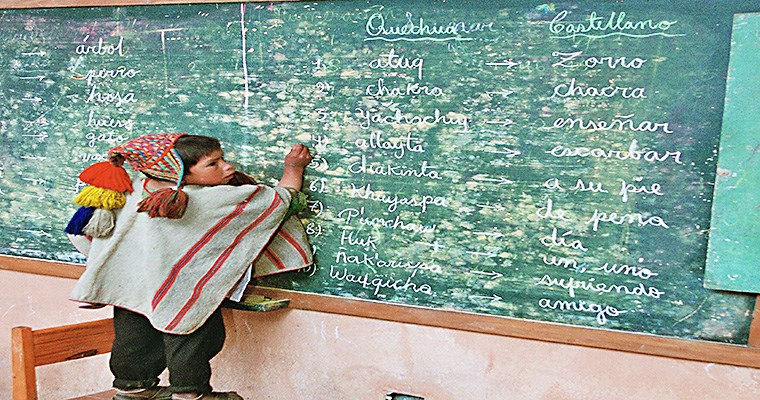 árbol
perro
hoja
gato
Quechua Castellano
1) atuq → zorro
2) chakra → chacra
3) Yachachiy → enseñar
4) allayta → escarbar
5) chakinta → a su pie
6) Khuyaspa → de pena
7) P'unchaw → día
8) Huk → un, uno
Ñak'arispa → sufriendo
Wayqicha → amigo